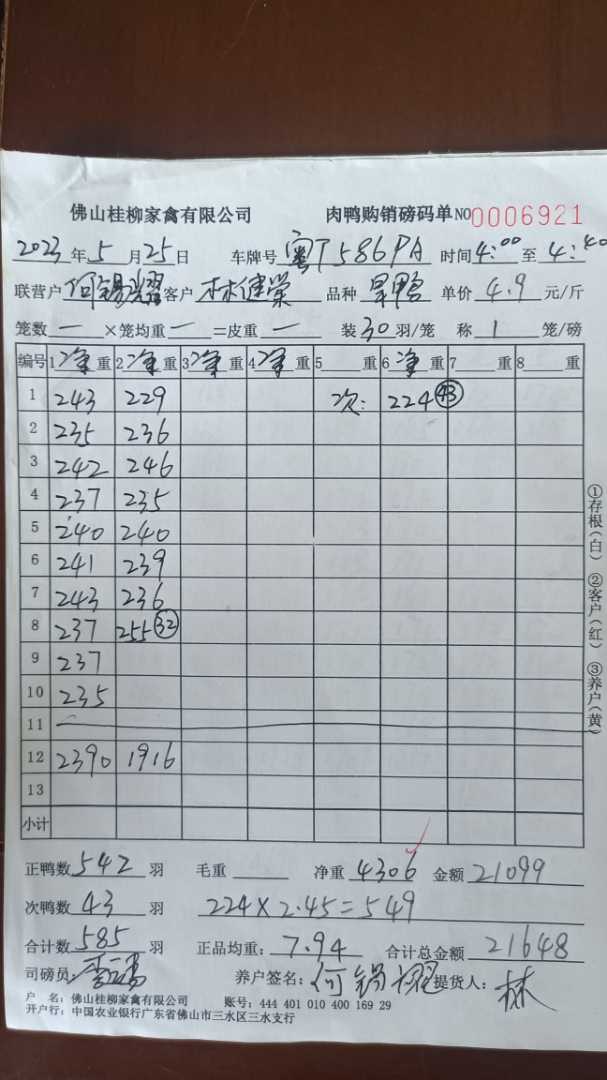 佛山桂柳家禽有限公司 肉鸭购销磅码单 NO 0006921
2023年5月25日 车牌号 粤T586PA 时间 4:00 至 4:40
联营户 何锡耀 客户 林健荣 品种 旱鸭 单价 4.9 元/斤
笼数 一 ×笼均重 一 =皮重 一 装 30 羽/笼 称 1 笼/磅
编号 1 净重 2 净重 3 净重 4 净重 5 重 6 净重 7 重 8 重
1 243 229 次: 224 43
2 235 236
3 242 246
4 237 235
5 240 240
6 241 239
7 243 236
8 237 255 32
9 237
10 235
11
12 2390 1916
13
小计
正鸭数 542 羽 毛重 净重 4306 金额 21099
次鸭数 43 羽 224×2.45=549
合计数 585 羽 正品均重: 7.94 合计总金额 21648
司磅员: 养户签名: 何锡耀 提货人: 林
户 名: 佛山桂柳家禽有限公司 账号: 444 401 010 400 169 29
开户行: 中国农业银行广东省佛山市三水区三水支行
①存根(白) ②客户(红) ③养户(黄)